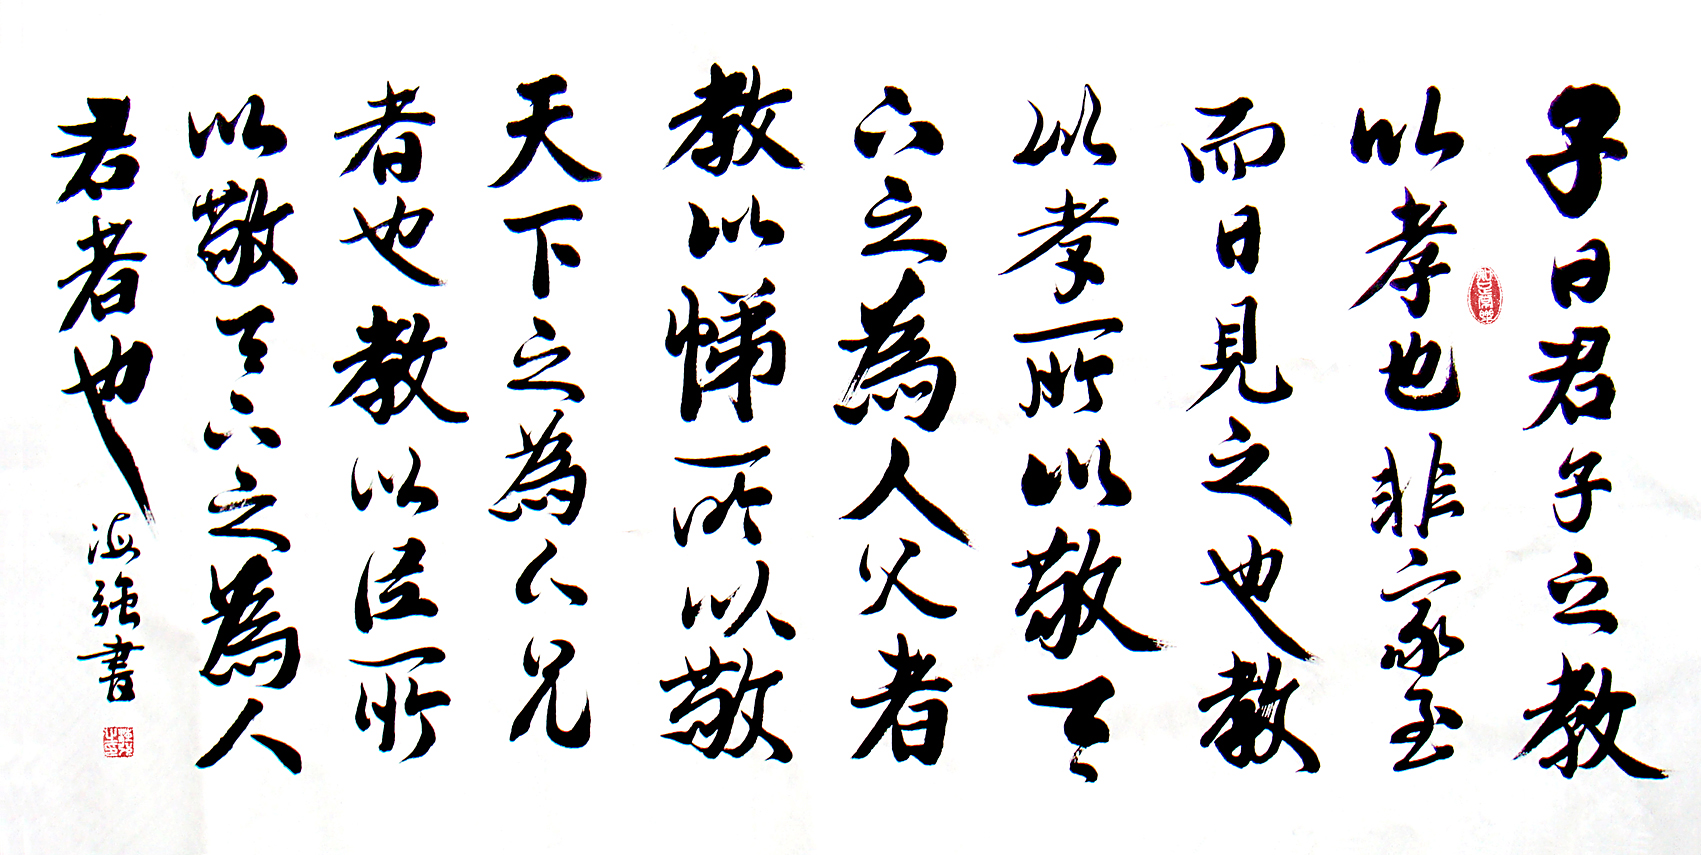 子曰君子之教
以孝也非家至
而日見之也教
以孝所以敬天
下之為人父者
教以悌所以敬
天下之為人兄
者也教以臣所
以敬天下之為人
君者也
海強書